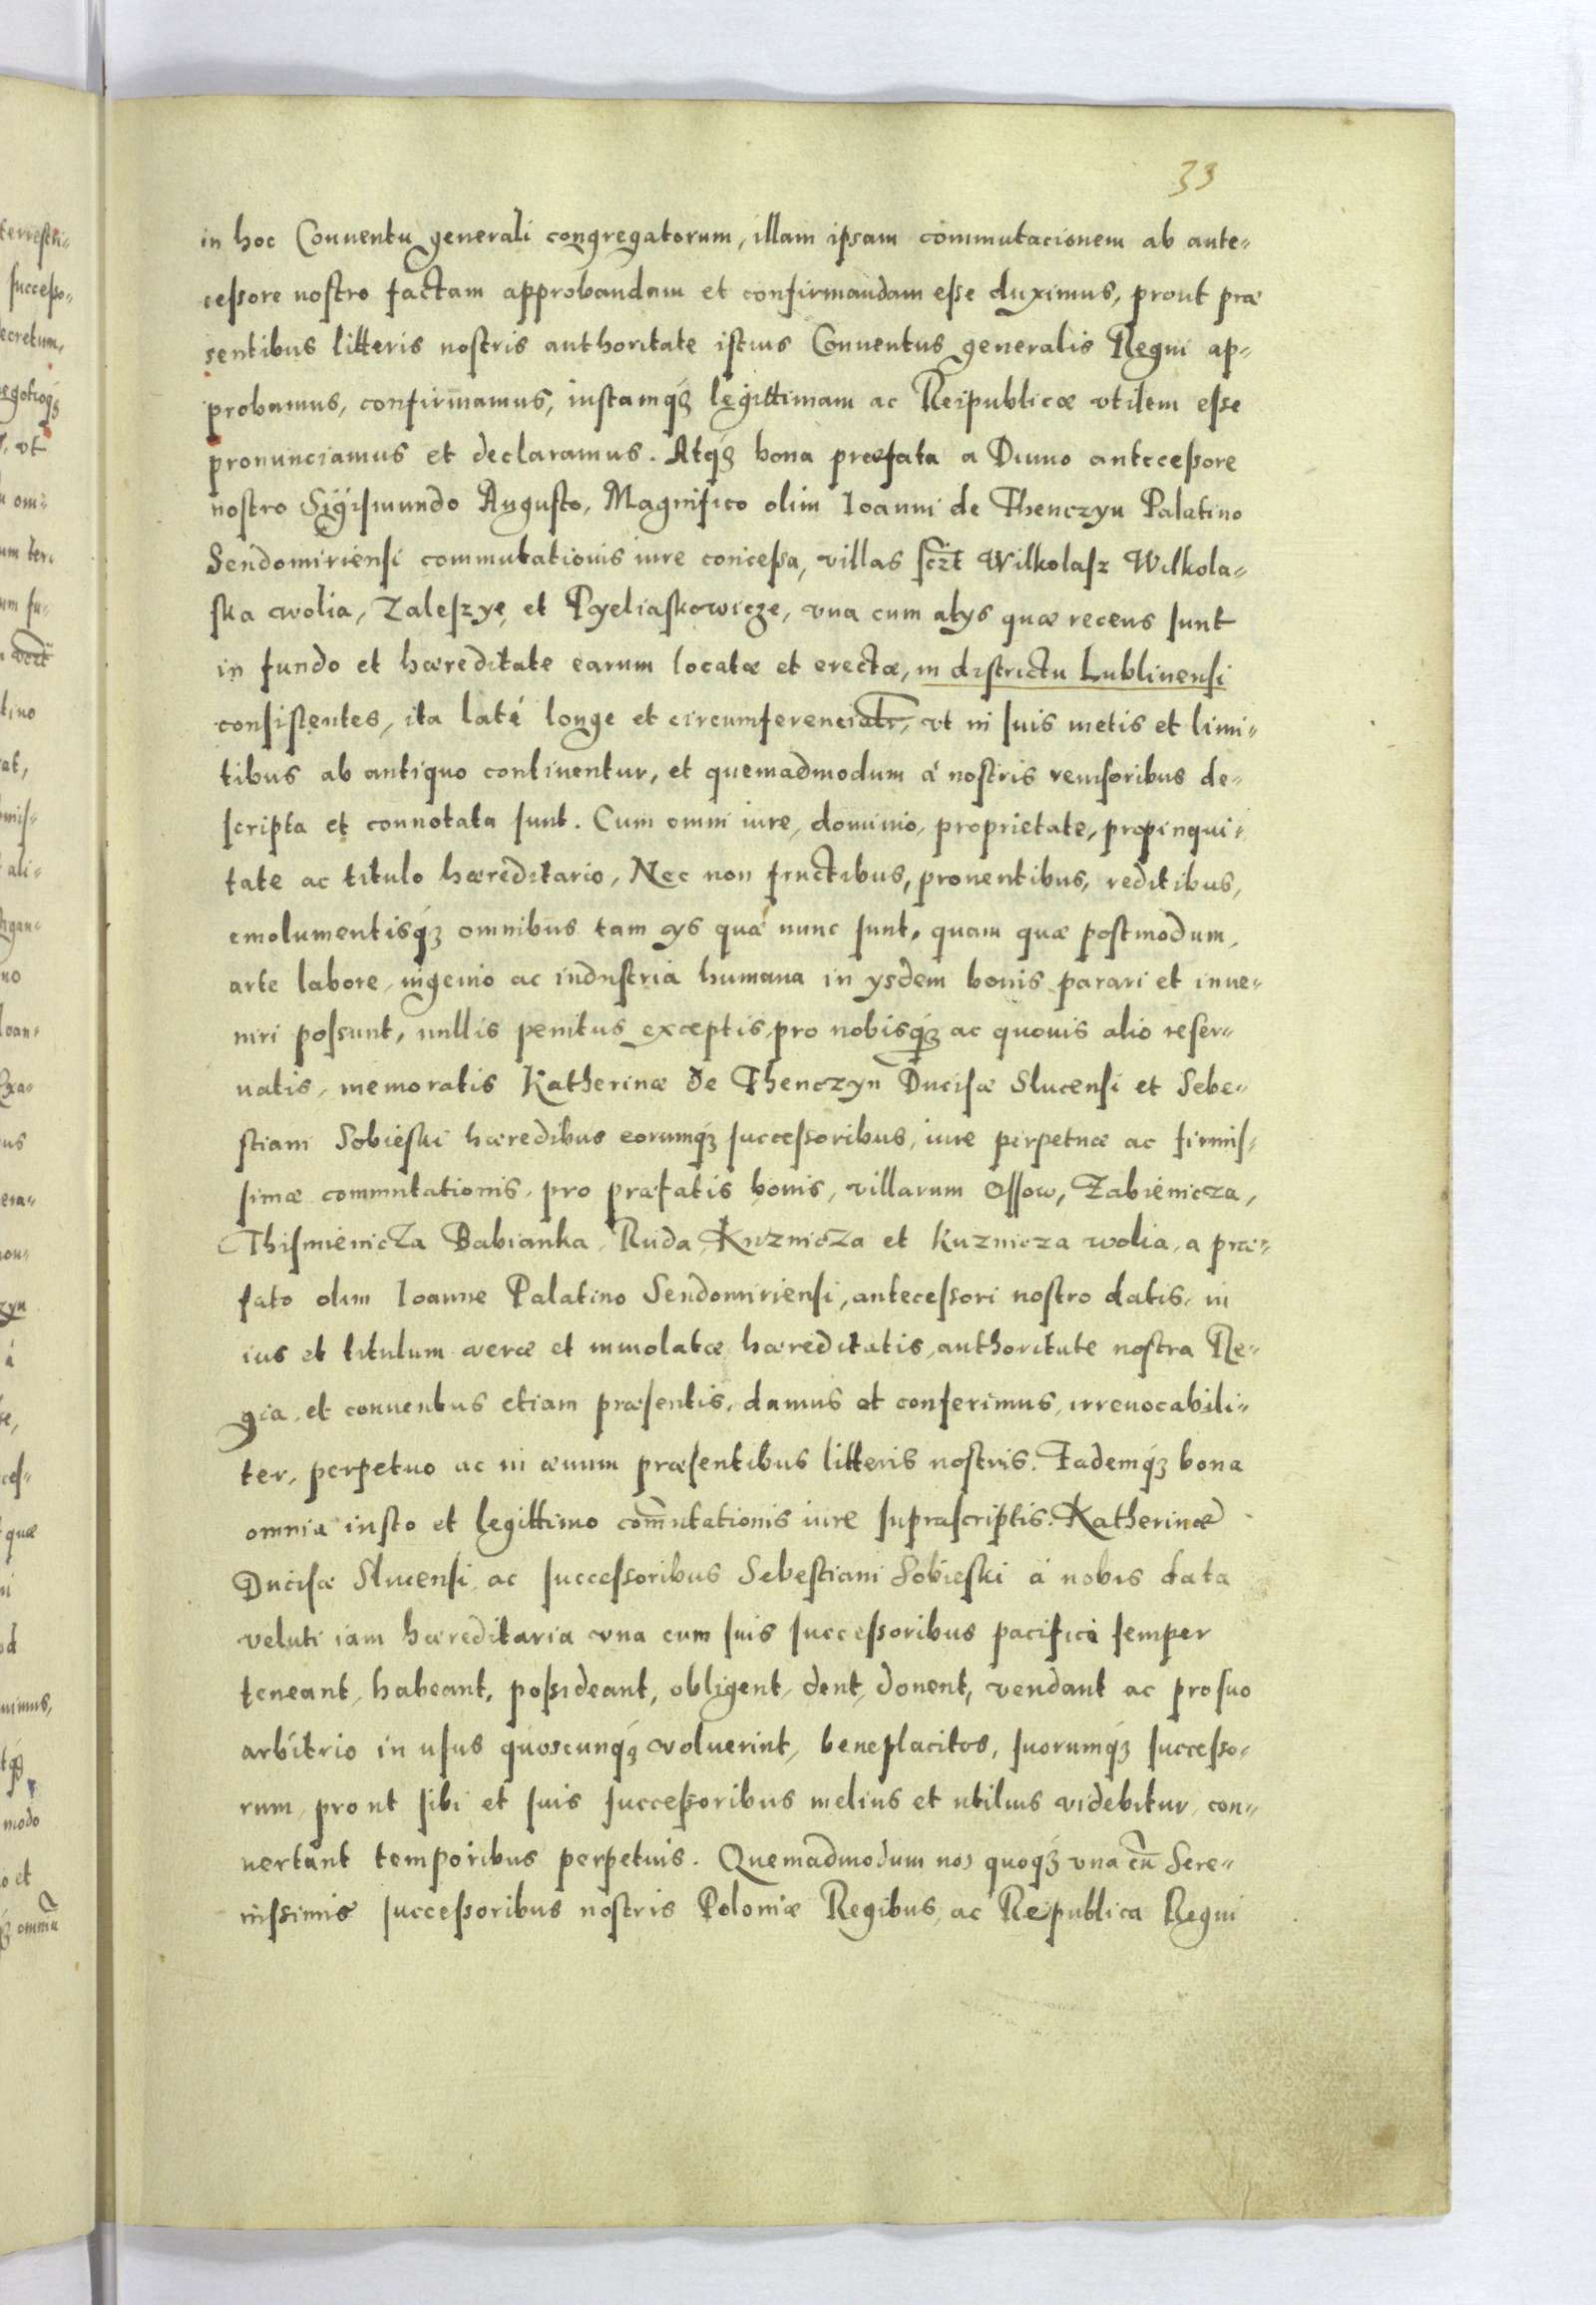 33
in hoc Conuentu generali congregatorum, illam ipsam commutacionem ab ante-
cessore nostro factam approbandam et confirmandam esse duximus, prout præ
sentibus litteris nostris authoritate istius Conuentus generalis Regni ap-
probamus, confirmamus, iustamq́ꝫ legittimam ac Reipublicæ vtilem esse
pronunciamus et declaramus. Atq́ꝫ bona præfata a Diuuo antecessore
nostro Sigismundo Augusto, Magnifico olim Ioanni de Thenczyn Palatino
Sendomiriensi commutationis iure concessa, villas sczt Wilkolasz Wilkola-
ska wolia, Zaleszye, et Pyeliaskowicze, vna cum alys quæ recens sunt
in fundo et hæreditate earum locatæ et erectæ, in districtu Lublinensi
consistentes, ita laté longe et circumferencialr, vt in suis metis et limi-
tibus ab antiquo continentur, et quemadmodum á nostris reuisoribus de-
scripta et connotata sunt. Cum omni iure, dominio, proprietate, propinqui-
tate ac titulo hæreditario, Nec non fructibus, prouentibus, reditibus,
emolumentisq́ꝫ omnibus tam ys quæ nunc sunt, quam quæ postmodum,
arte labore, ingenio ac industria humana in ysdem bonis parari et inue-
niri possunt, nullis penitus exceptis, pro nobisq́ꝫ ac quouis alio reser-
uatis, memoratis Katherinæ de Thenczyn Ducisæ Slucensi et Sebe-
stiani Sobieski hæredibus eorumq́ꝫ successoribus, iure perpetuæ ac firmis-
simæ commutationis, pro præfatis bonis, villarum Ossow, Zabienicza,
Thismienicza Babianka, Ruda, Kuznicza et Kuznicza wolia, a præ-
fato olim Ioanne Palatino Sendomiriensi, antecessori nostro datis, in
ius et titulum veræ et inuiolatæ hæreditatis, authoritate nostra Re-
gia, et conuentus etiam præsentis, damus et conferimus, irreuocabili-
ter, perpetuo ac in æuum præsentibus litteris nostris. Eademq́ꝫ bona
omnia iusto et legittimo com̃utationis iure suprascriptis. Katherinæ
Ducisæ Slucensi, ac successoribus Sebestiani Sobieski á nobis data
veluti iam hæreditaria vna cum suis successoribus pacifice semper
teneant, habeant, possideant, obligent, dent, donent, vendant ac pro suo
arbitrio in usus quoscunq́ꝫ voluerint, beneplacitos, suorumq́ꝫ successo-
rum, prout sibi et suis successoribus melius et utilius videbitur, con-
uertant temporibus perpetuis. Quemadmodum nos quoq́ꝫ vna cũ Sere-
nissimis successoribus nostris Poloniæ Regibus, ac Republica Regni